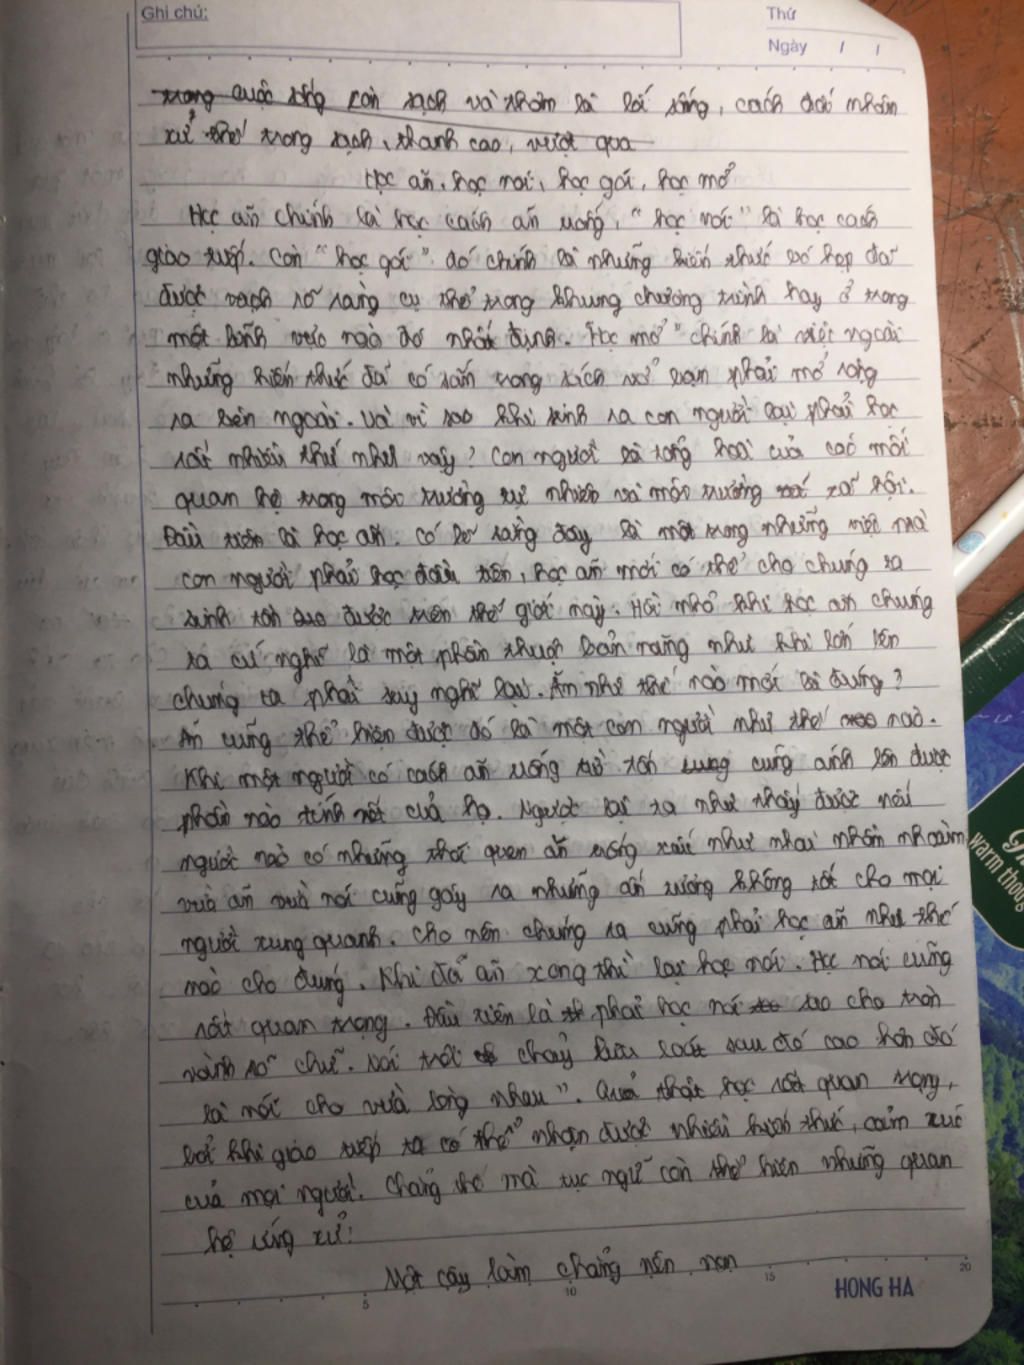 Ghi chú:
Thứ
Ngày / /
trong cuộc sống còn sạch và thơm là lối sống, cách đối nhân
xử thế trong sạch, thanh cao, vượt qua
Học ăn, học nói, học gói, học mở
Học ăn chính là học cách ăn uống, "học nói" là học cách
giao tiếp. Còn "học gói" đó chính là những kiến thức bó hẹp đã
được vạch rõ ràng cụ thể trong khung chương trình hay ở trong
một lĩnh vực nào đó nhất định. Học mở" chính là việc ngoài
những kiến thức đã có sẵn trong sách vở bạn phải mở rộng
ra bên ngoài. Và vì sao khi sinh ra con người lại phải học
rất nhiều thứ như vậy? Con người là tổng hoà của các mối
quan hệ trong môi trường tự nhiên và môi trường xã hội.
Đầu tiên là học ăn. Có lẽ rằng đây là một trong những việc mà
con người phải học đầu tiên, học ăn mới có thể cho chúng ta
sinh tồn được trên thế giới này. Hồi nhỏ khi học ăn chúng
ta cứ nghĩ là một phần thuộc bản năng như khi lớn lên
chúng ta phải suy nghĩ lại. Ăn như thế nào mới là đúng?
Ăn cũng thể hiện được đó là một con người như thế nào.
Khi một người có cách ăn uống từ tốn cũng ánh lên được
phần nào tính nết của họ. Ngược lại ta như thấy được nếu
người nào có những thói quen ăn uống xấu như nhai nhồm nhoàm
vừa ăn vừa nói cũng gây ra những ấn tượng không tốt cho mọi
người xung quanh. Cho nên chúng ta cũng phải học ăn như thế
nào cho đúng. Khi đã ăn xong thì lại học nói. Học nói cũng
rất quan trọng. Đầu tiên là phải học nói sao cho tròn
vành rõ chữ. Nói trôi chảy lưu loát sau đó cao hơn đó
là nói cho vừa lòng nhau". Quả thật học rất quan trọng,
bởi khi giao tiếp ta có thể nhận được nhiều kiến thức, cảm xúc
của mọi người. Chẳng thế mà tục ngữ còn thể hiện những quan
hệ ứng xử:
Một cây làm chẳng nên non
5 10 15 20
HONG HA
warm thoug